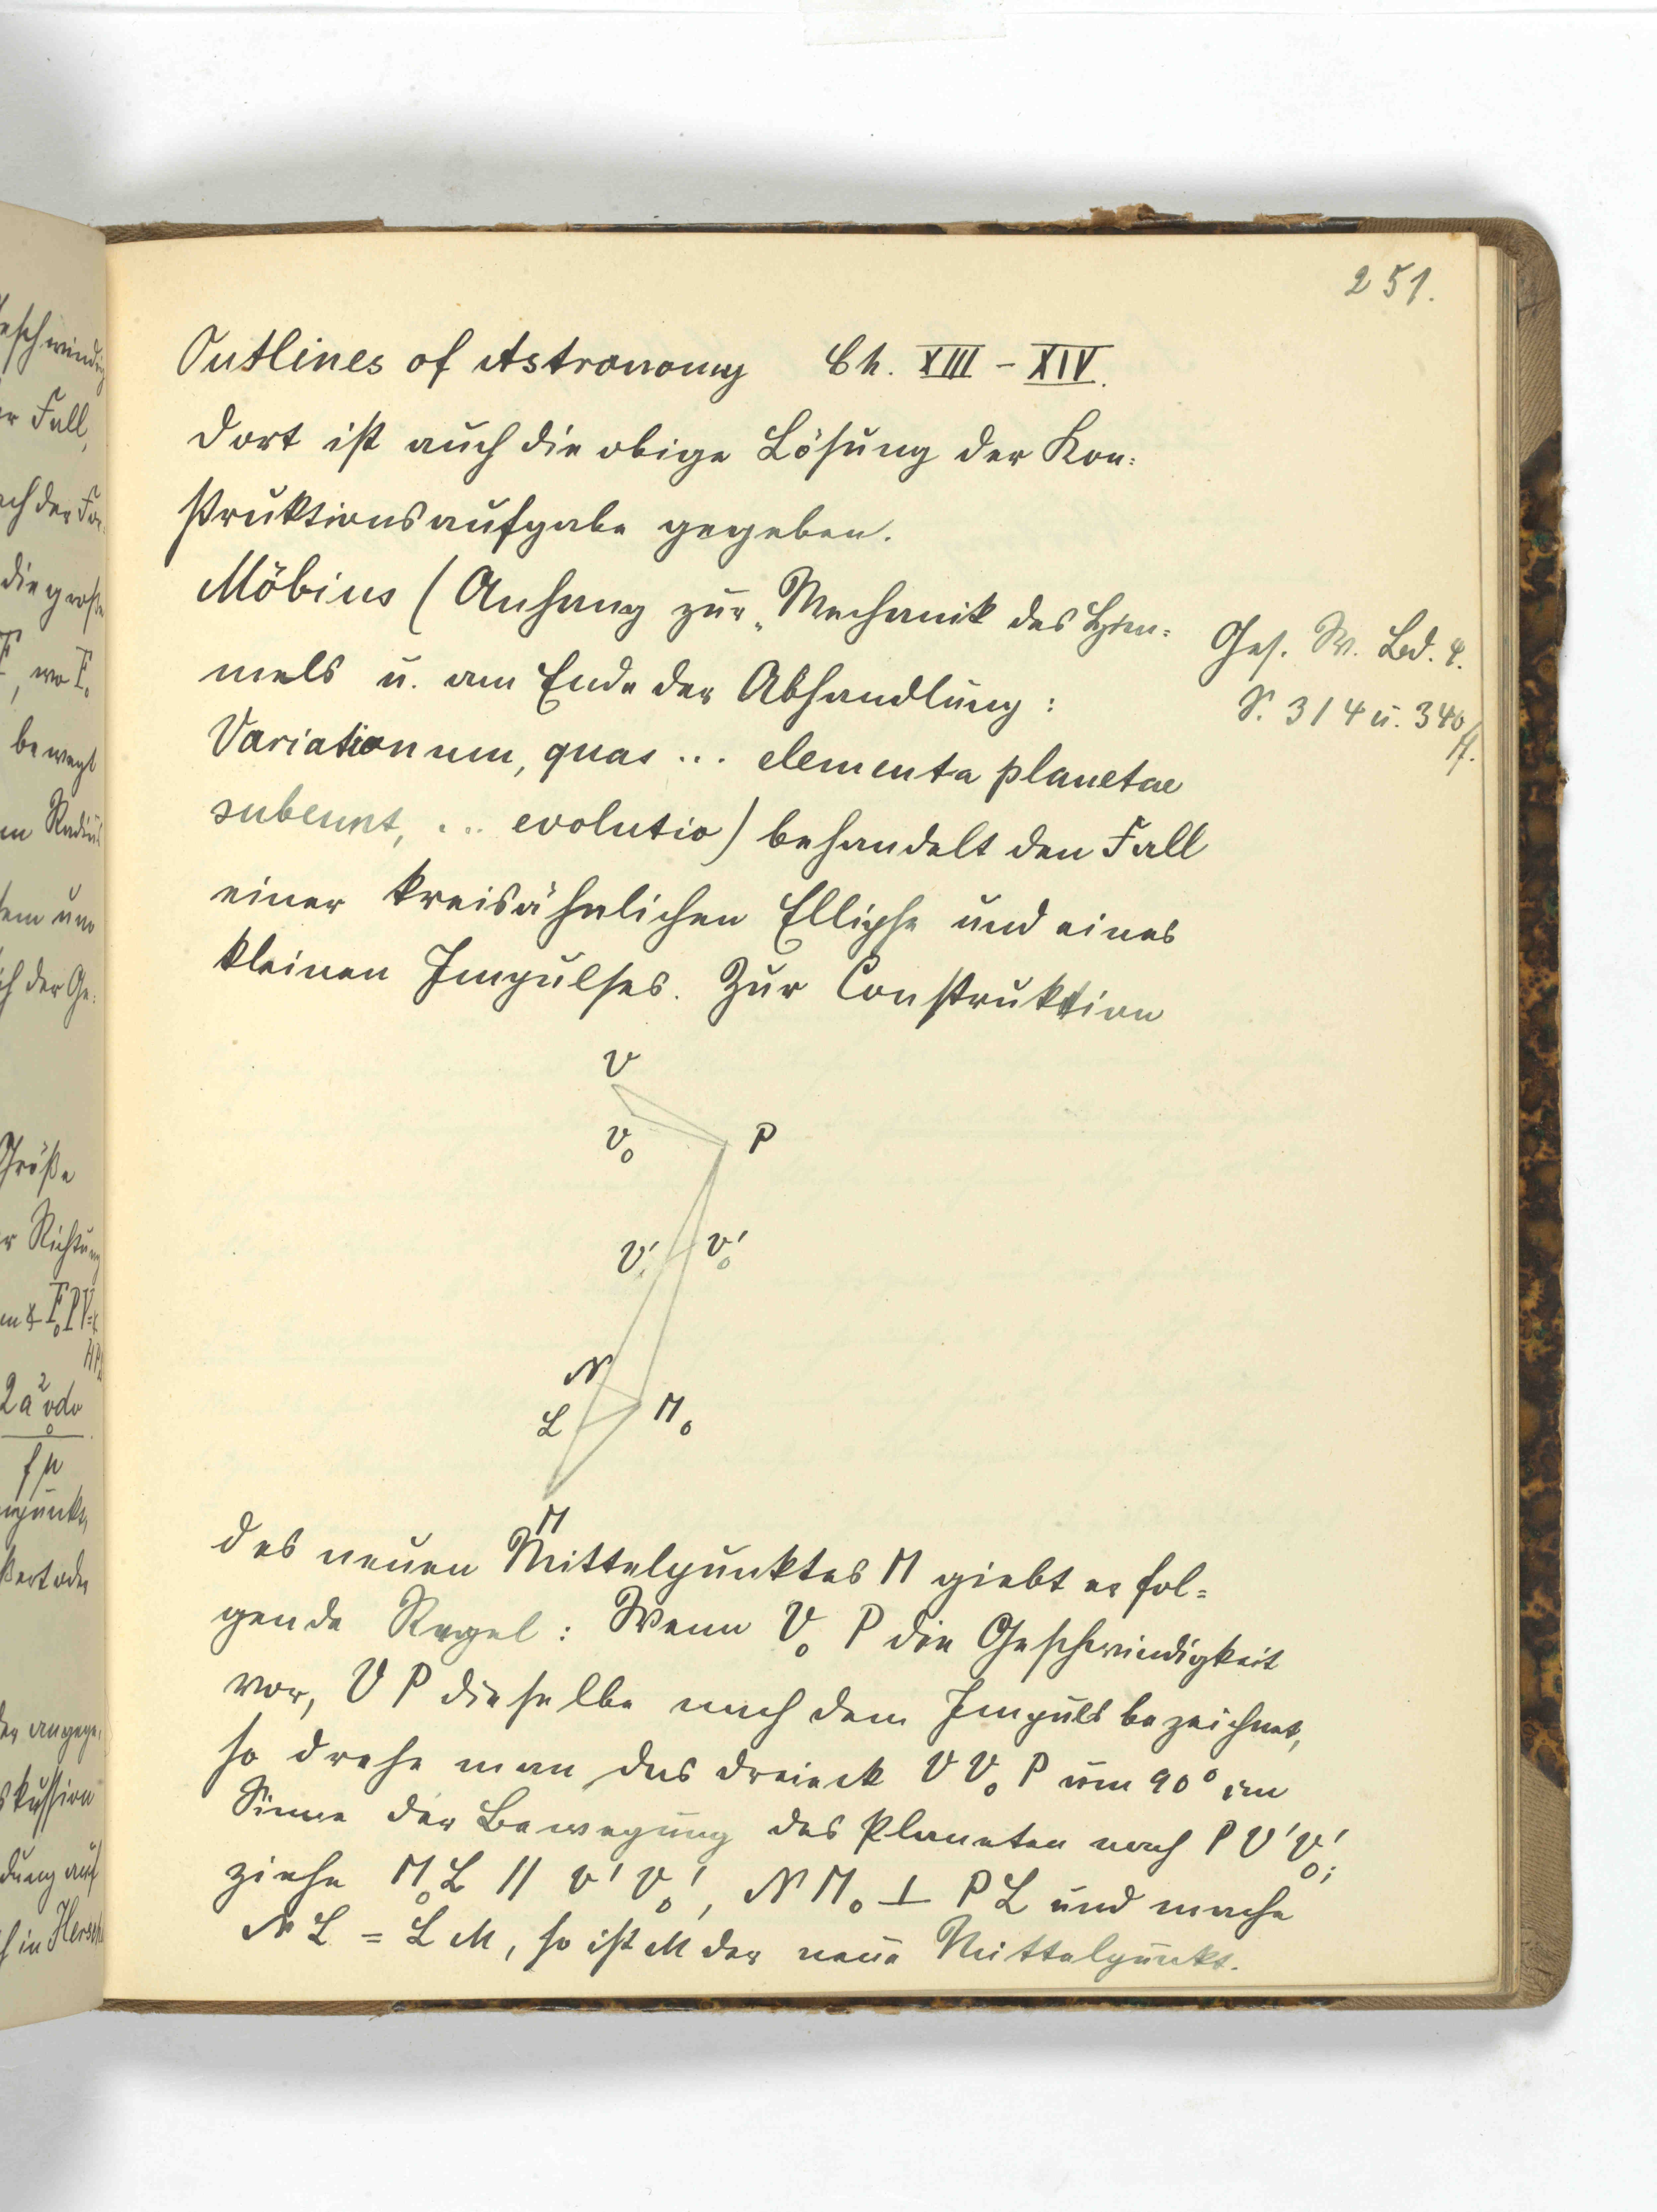 251.
Outlines of Astronomy Ch. XIII – XIV.
Dort ist auch die obige Lösung der Kon=
struktionsaufgabe gegeben.
Möbius (Anhang zur „Mechanik des Him=
mels u. am Ende der Abhandlung:
Variationum, quas ... elementa planetae
subeunt, ... evolutio) behandelt den Fall
einer kreisähnlichen Ellipse und eines
kleinen Impulses. Zur Construktion
Ges. W. Bd. 4.
S. 314 u. 340
ff.
V
V₀ P
V' V₀'
N
L M₀
M
des neuen Mittelpunktes M giebt er fol=
gende Regel: Wenn V₀ P die Geschwindigkeit
vor, V P dieselbe nach dem Impuls bezeichnet,
so drehe man das Dreieck V V₀ P um 90° im
Sinne der Bewegung des Planeten nach P V' V₀';
ziehe M₀ L // V' V₀', N M₀ ⊥ P L und mache
N L = L M, so ist M der neue Mittelpunkt.